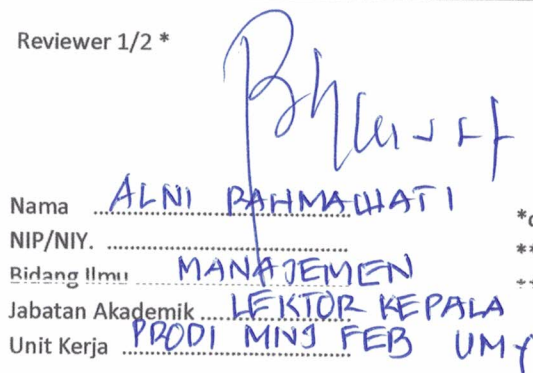 Reviewer 1/2 *
Nama ALNI RAHMAWATI
*
NIP/NIY. ........................................
**
Bidang Ilmu MANAJEMEN
Jabatan Akademik LEKTOR KEPALA
Unit Kerja PRODI MNJ FEB UMY